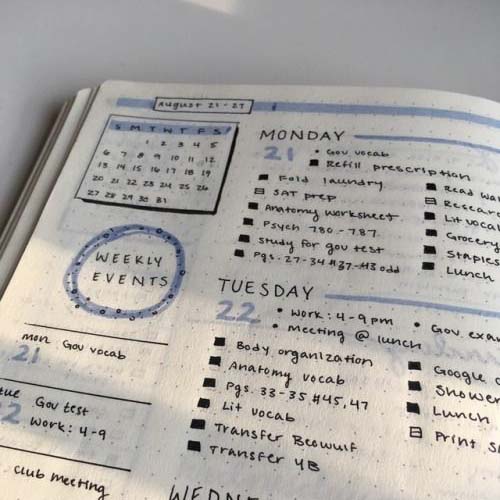 August 21-27
S M T W T F S
1 2 3 4 5
6 7 8 9 10 11 12
13 14 15 16 17 18 19
20 21 22 23 24 25 26
27 28 29 30 31
WEEKLY
EVENTS
mon Gov vocab
21
tue Gov test
22 Work: 4-9
club meeting
MONDAY
21
• Gov vocab
Refill prescription
Fold laundry
SAT prep
Anatomy worksheet
Psych 780-787
Study for gov test
Pgs. 27-34 #37-43 odd
Read
Lit vocab
Grocery
Staples
Lunch
TUESDAY
22
• Work: 4-9pm
• Meeting @ lunch
• Gov
Body organization
Anatomy vocab
Pgs. 33-35 #45,47
Lit vocab
Transfer Beowulf
Transfer 4B
Google
Shower
Lunch
Print